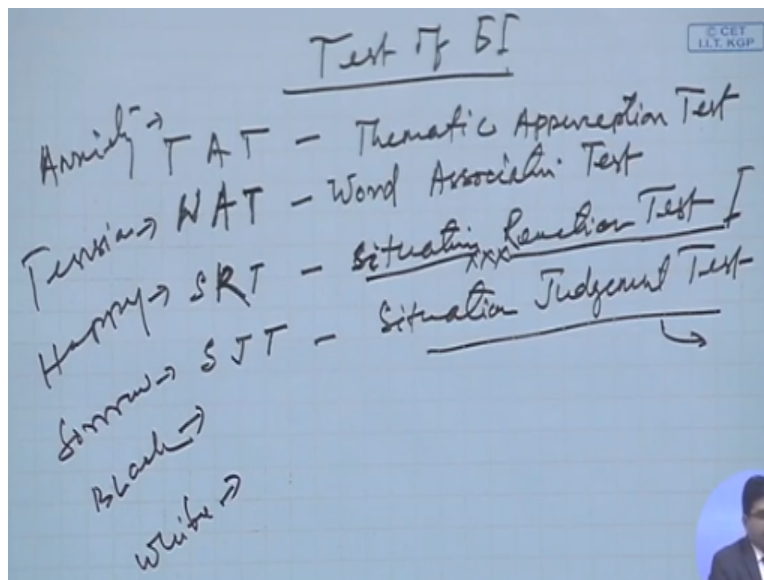 Test of EI
© CET
I.I.T. KGP
Anxiety → TAT - Thematic Apperception Test
Tension → WAT - Word Association Test
Happy → SRT - Situation Reaction Test I
xxx
Sorrow → SJT - Situation Judgement Test
Black →
White →